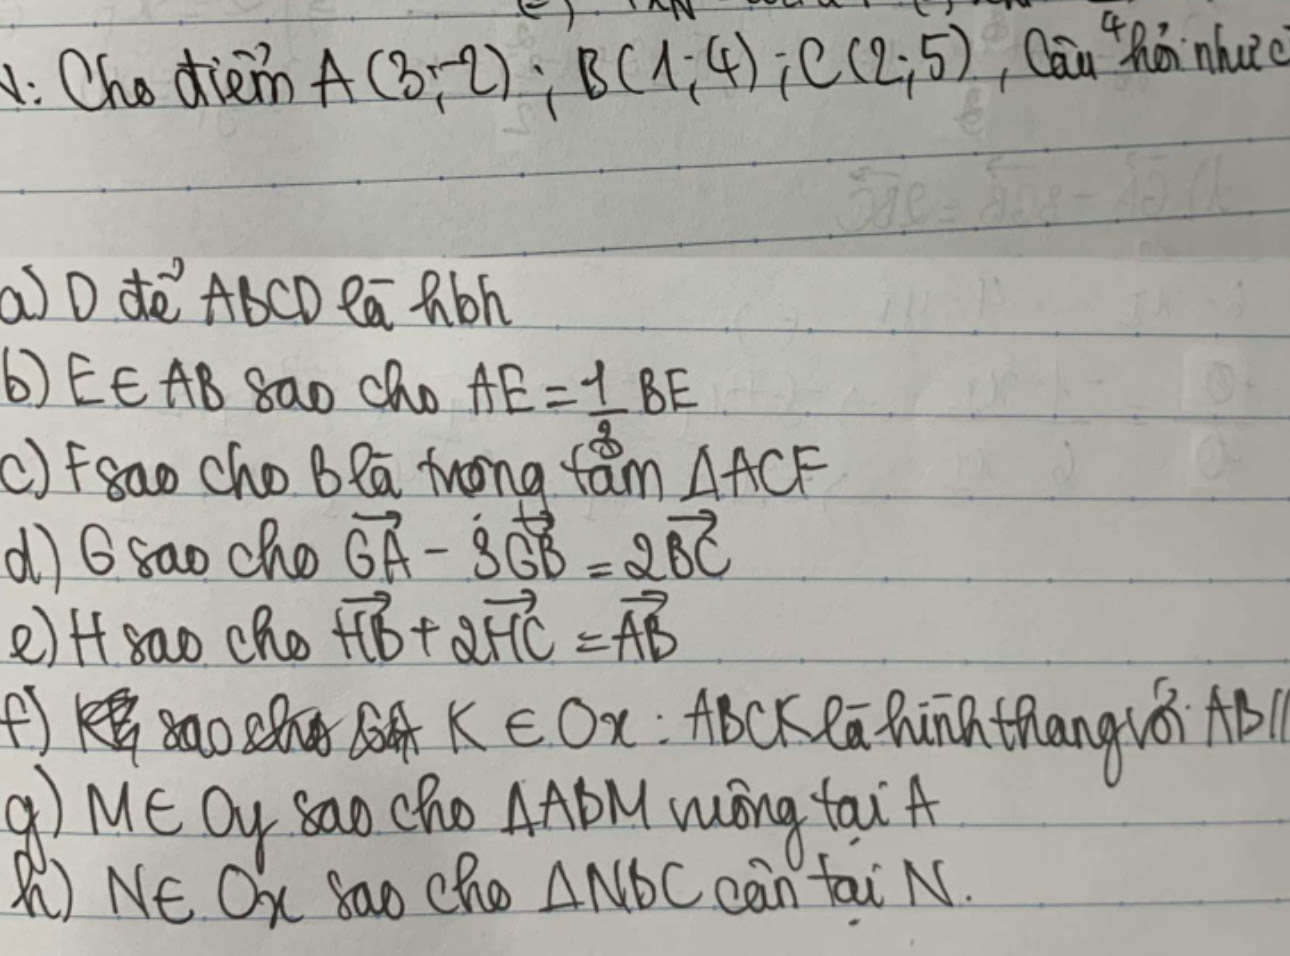 V: Cho điểm A(3;-2); B(1;4); C(2;5), Câu hỏi như c
a) D để ABCD là hbh
b) E ∈ AB sao cho AE = 1/3 BE
c) F sao cho B là trọng tâm ΔACF
d) G sao cho GA→ - 3GB→ = 2BC→
e) H sao cho HB→ + 2HC→ = AB→
f) K sao cho K ∈ Ox : ABCK là hình thang với AB//
g) M ∈ Oy sao cho ΔABM vuông tại A
h) N ∈ Ox sao cho ΔNBC cân tại N.